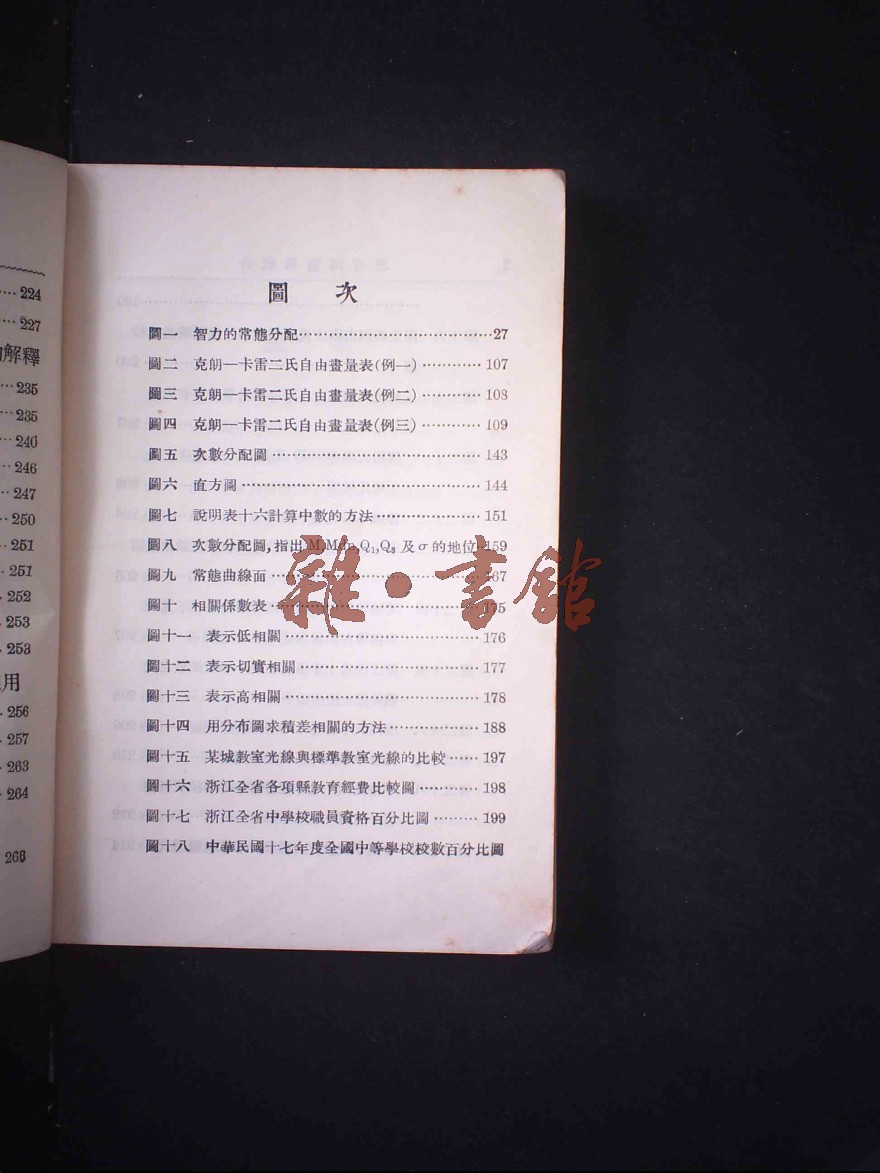 224
227
解釋
235
235
240
246
247
250
251
251
252
253
253
用
256
257
263
264
268
圖 次
圖一 智力的常態分配……………………………27
圖二 克朗—卡雷二氏自由畫量表(例一)…………107
圖三 克朗—卡雷二氏自由畫量表(例二)…………108
圖四 克朗—卡雷二氏自由畫量表(例三)…………109
圖五 次數分配圖……………………………143
圖六 直方圖……………………………144
圖七 說明表十六計算中數的方法……………151
圖八 次數分配圖,指出M,Mdn,Q1,Q3及σ的地位·159
圖九 常態曲線面……………………………167
圖十 相關係數表……………………………175
圖十一 表示低相關……………………………176
圖十二 表示切實相關……………………………177
圖十三 表示高相關……………………………178
圖十四 用分布圖求積差相關的方法……………188
圖十五 某城教室光線與標準教室光線的比較……197
圖十六 浙江全省各項縣教育經費比較圖…………198
圖十七 浙江全省中學校職員資格百分比圖………199
圖十八 中華民國十七年度全國中等學校校數百分比圖
雜·書館